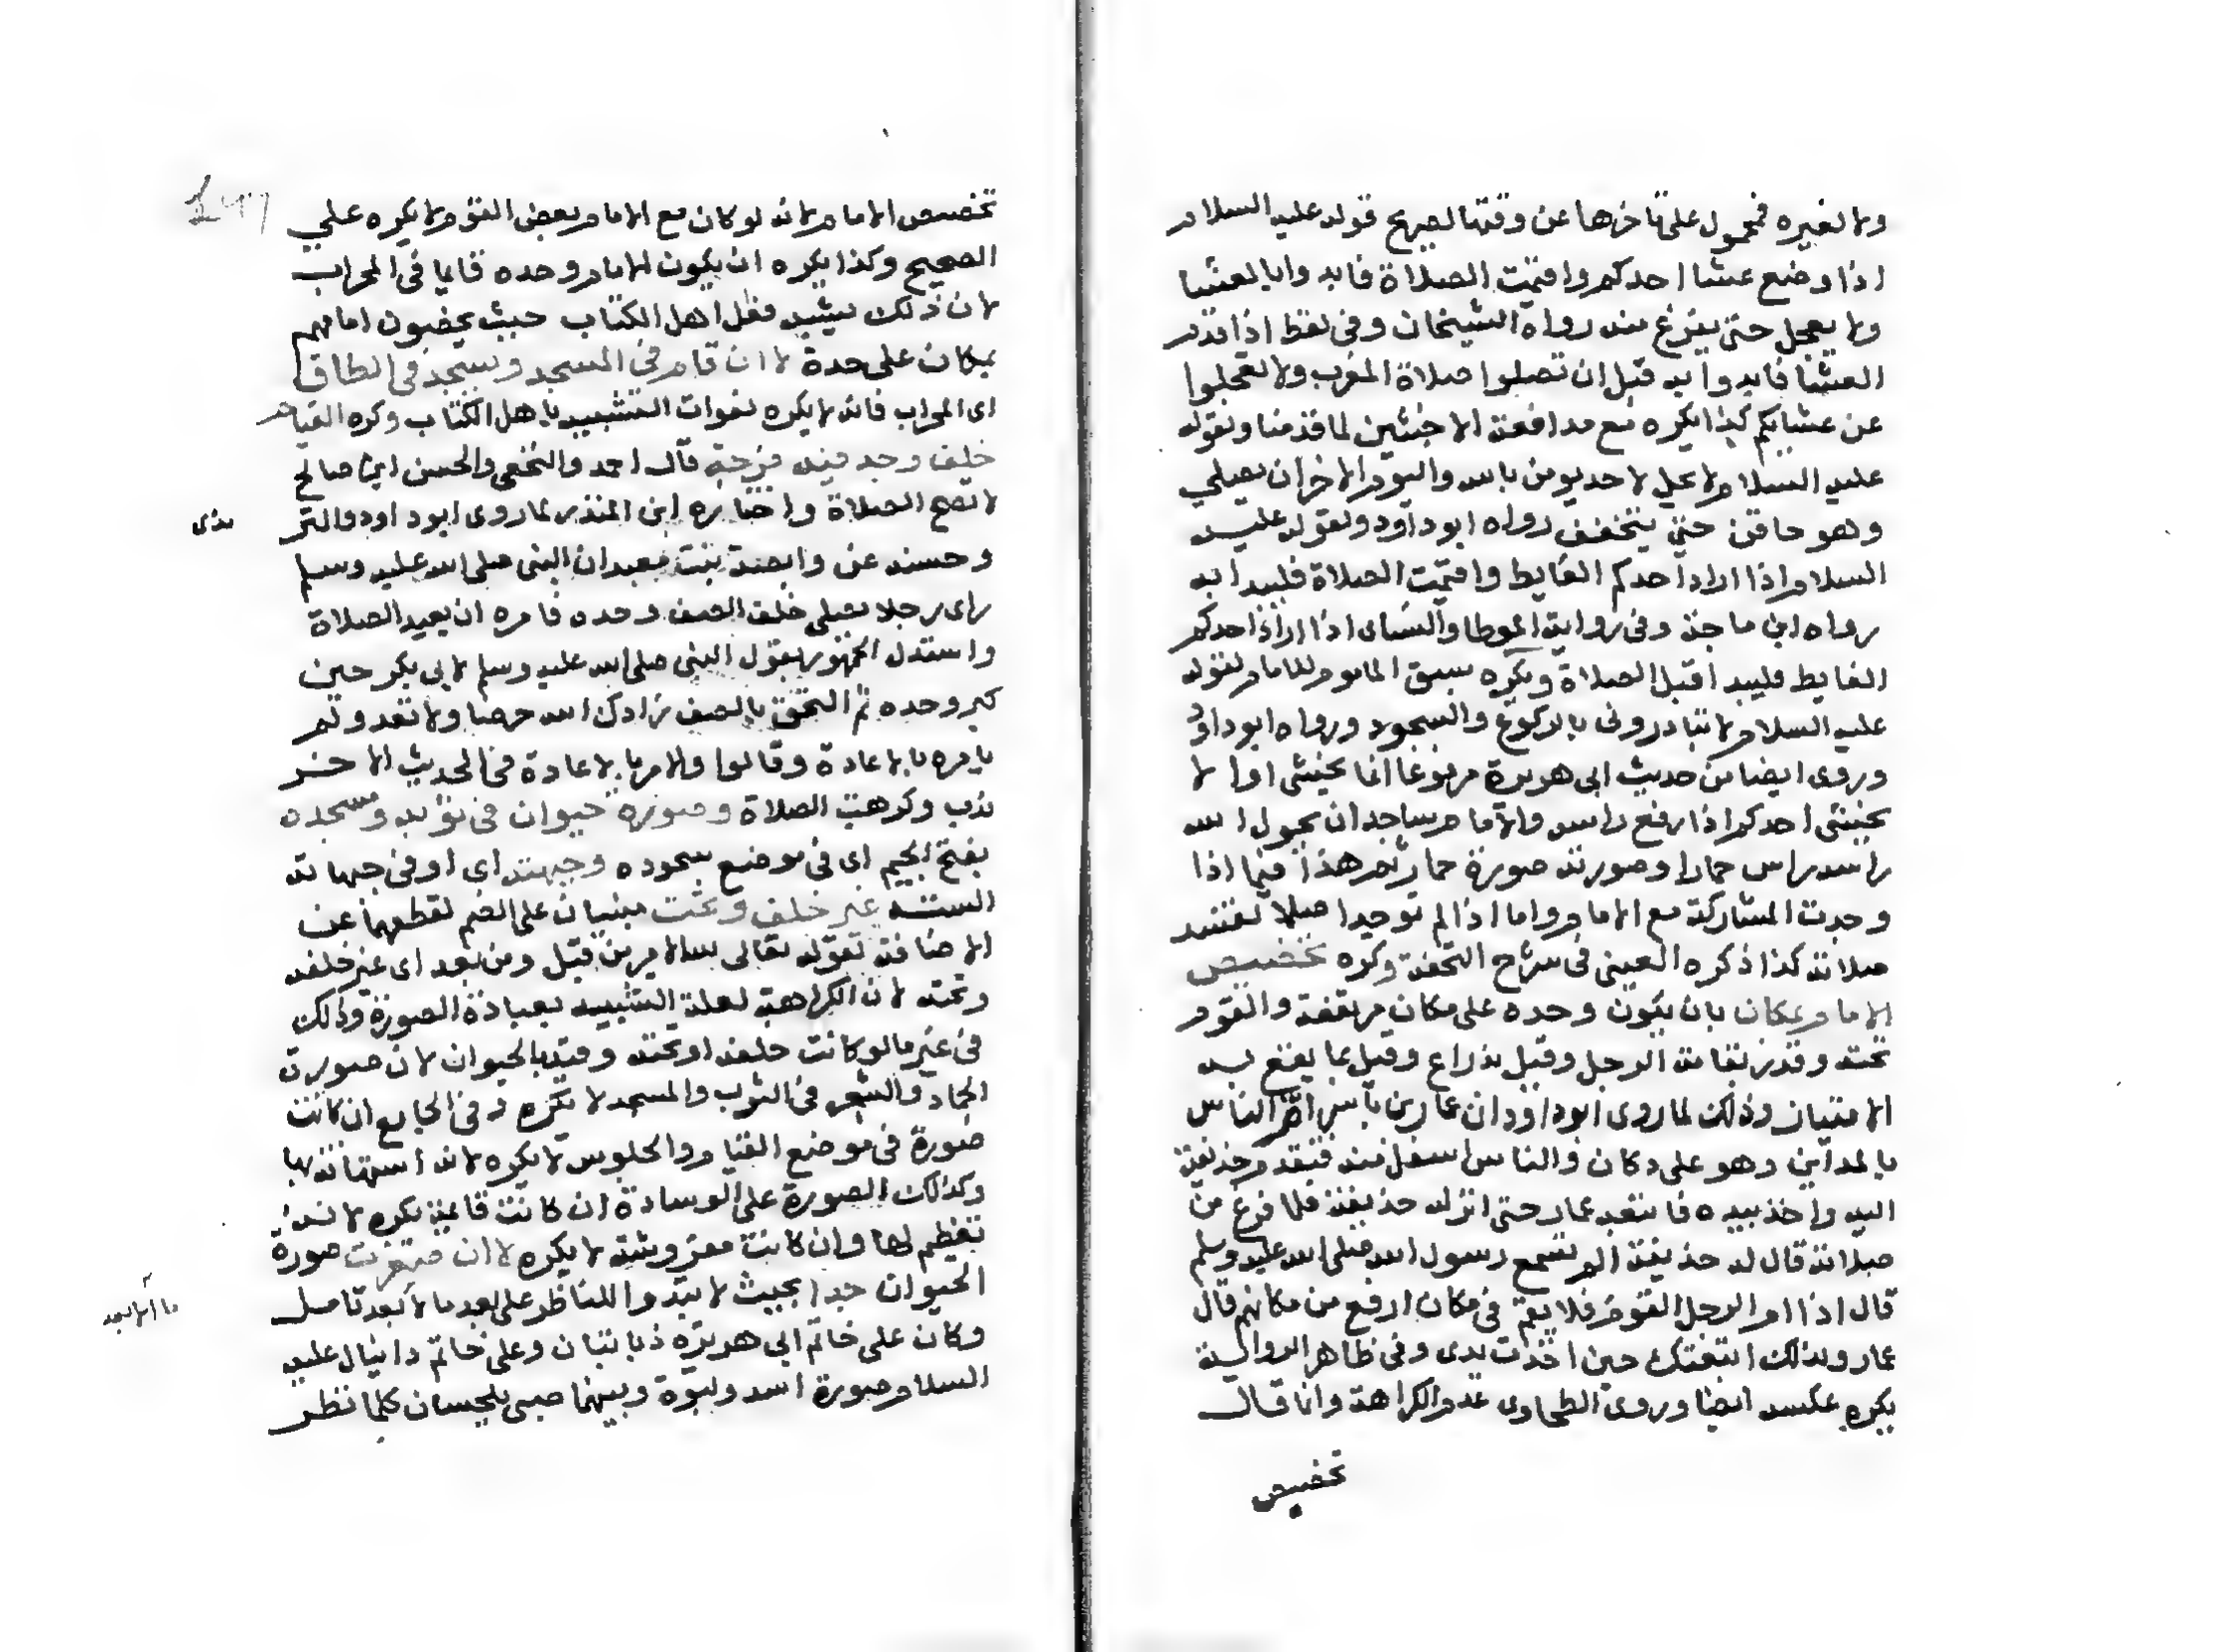 ولا لغيره فمحمول على تاخرها عن وقتها لصريح قوله عليه السلام
اذا وضع عشا احدكم واقيمت الصلاة فابدوا بالعشا
ولا يعجل حتى يفرغ منه رواه الشيخان وفى لفظ اذا قدم
العشا فابدوا به قبل ان تصلوا صلاة المغرب ولا تعجلوا
عن عشايكم كذا يكره مع مدافعة الاخبثين لما قدمنا ولقوله
عليه السلام لا يحل لاحد يومن بالله واليوم الاخر ان يصلي
وهو حاقن حتى يتخفف رواه ابو داود ولقوله عليه
السلام اذا اراد احدكم الغايط واقيمت الصلاة فليبدا به
رواه ابن ماجة وفى رواية الموطا والنساى اذا اراد احدكم
الغايط فليبدا قبل الصلاة ويكره سبق الماموم للامام لقوله
عليه السلام لا تبادرونى بالركوع والسجود ورواه ابو داود
وروى ايضا من حديث ابى هريرة مرفوعا اما يخشى اوالا
يخشى احدكم اذا رفع راسه والامام ساجد ان يحول الله
راسه راس حمارا وصورته صورة حمار ثم هذا فيما اذا
وجدت المشاركة مع الامام واما اذا لم توجد اصلا تفسد
صلاته كذا ذكره العينى فى شرح التحفة وكره تخصيص
الامام بمكان بان يكون وحده على مكان مرتفعة والقوم
تحته وقدر بقامة الرجل وقيل بذراع وقيل بما يقع به
الامتياز وذلك لما روى ابو داود ان عمار بن ياسر ام الناس
بالمداين وهو على دكان والناس اسفل منه فتقدم حذيفة
اليه واخذ بيده فاتبعه عمار حتى انزله حذيفة فلما فرغ من
صلاته قال له حذيفة الم تسمع رسول الله صلى الله عليه وسلم
قال اذا ام الرجل القوم فلا يقم فى مكان ارفع من مكانهم قال
عمار ولذلك اتبعتك حين اخذت يدى وفى ظاهر الرواية
يكره عكسه ايضا وروى الطحاوى عدم الكراهة وانما قال
تخصيص
تخصيص الامام لانه لو كان مع الامام بعض القوم لا يكره علي
الصحيح وكذا يكره ان يكون الامام وحده قايما فى المحراب
لان ذلك يشبه فعل اهل الكتاب حيث يخصون امامهم
بمكان على حدة لا ان قام فى المسجد وسجد فى الطاق
اى المحراب فانه لا يكره لفوات التشبيه باهل الكتاب وكره القيام
خلف وجد فيه فرجة قال احمد والنخعى والحسن ابن صالح
لا تصح الصلاة واختاره ابن المنذر لما روى ابو داود والتر
مذى
وحسنه عن وابصة بنت معبد ان النبى صلى الله عليه وسلم
راى رجلا يصلى خلف الصف وحده فامره ان يعيد الصلاة
واستدل الجمهور بقول النبى صلى الله عليه وسلم لابى بكر حين
كبر وحده ثم التحق بالصف زادك الله حرصا ولا تعد ولم
يامره بالاعادة وقالوا والامر بالاعادة فى الحديث الاخر
ندب وكرهت الصلاة وصورة حيوان فى ثوبه ومسجده
بفتح الجيم اى فى موضع سجوده وجهته اى او فى جهاته
الستة غير خلف وتحت مبنيان على الضم لقطعهما عن
الاضافة لقوله تعالى لله الامر من قبل ومن بعد اى غير خلفه
وتحته لان الكراهة لعلة التشبيه بعبادة الصورة وذلك
فى غير ما لو كانت خلفه او تحته وقيد بالحيوان لان صورة
الجماد والشجر فى الثوب والمسجد لا تكره وفى الجامع ان كانت
صورة فى موضع القيام والجلوس لا يكره لانه استهانة بها
وكذلك الصورة على الوسادة ان كانت قايمة يكره لانه
تعظيم لها وان كانت مفروشة لا يكره لا ان صغرت صورة
الحيوان جدا بحيث لا تبدوا للناظر على بعد ما لا بعد تامل
وكان على خاتم ابى هريرة ذبابتان وعلى خاتم دانيال عليه
السلام صورة اسد ولبوة وبينهما صبى يلحسان كلما نظر